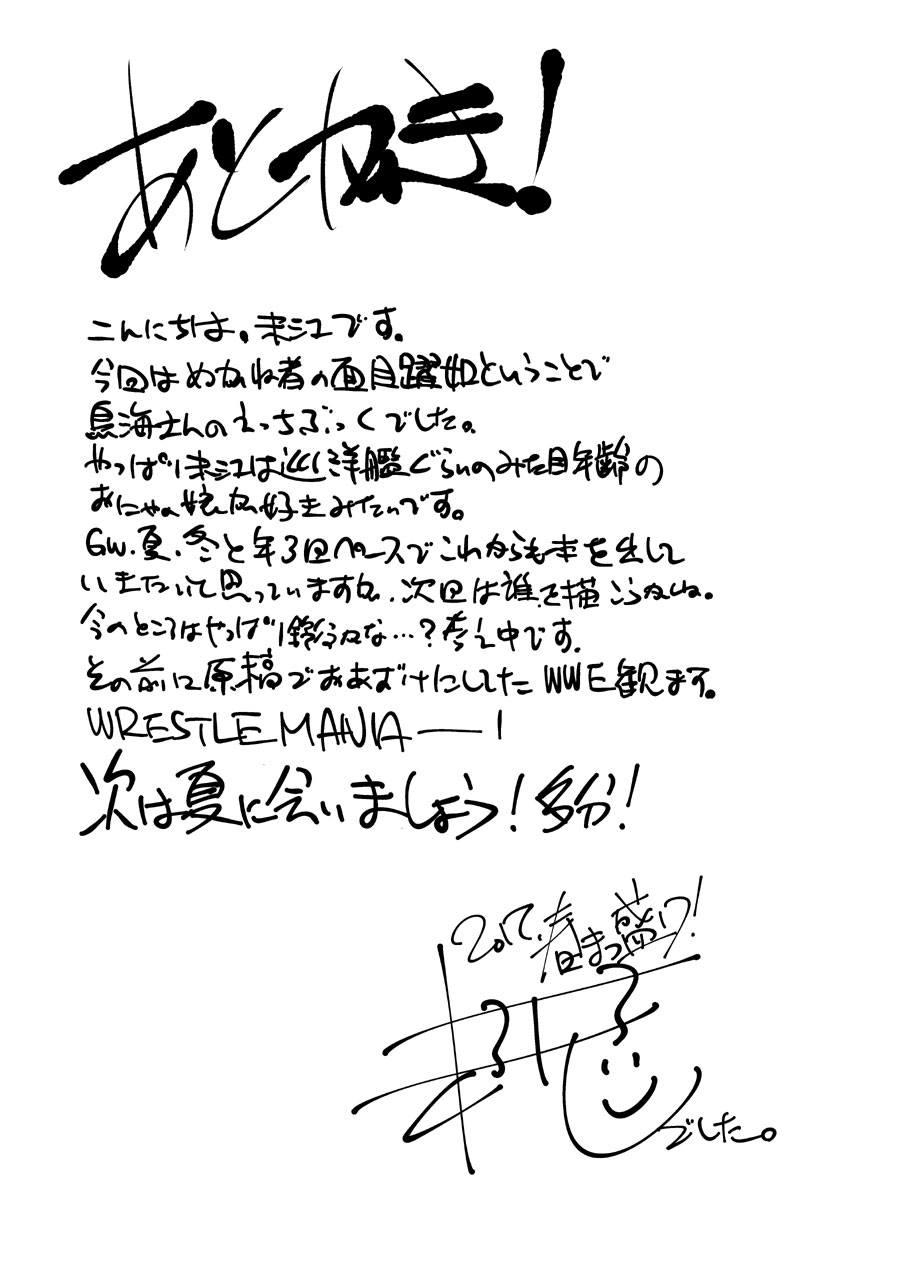 あとがき!
こんにちは。末江です。
今回はめがね者の面目躍如ということで
鳥海さんのえっちぶっくでした。
やっぱり末江は巡洋艦ぐらいのみた目年齢の
おにゃの娘が好きみたいです。
GW.夏.冬と年3回ペースでこれからも本を出して
いきたいって思っていますが、次回は誰を描こうかしね。
今のところはやっぱり鈴谷かな…?考え中です.
その前に原稿でおあずけにしてたWWE観ます。
WRESTLE MANIA――!
次は夏に会いましょう!多分!
2017.春まっ盛り!
でした。